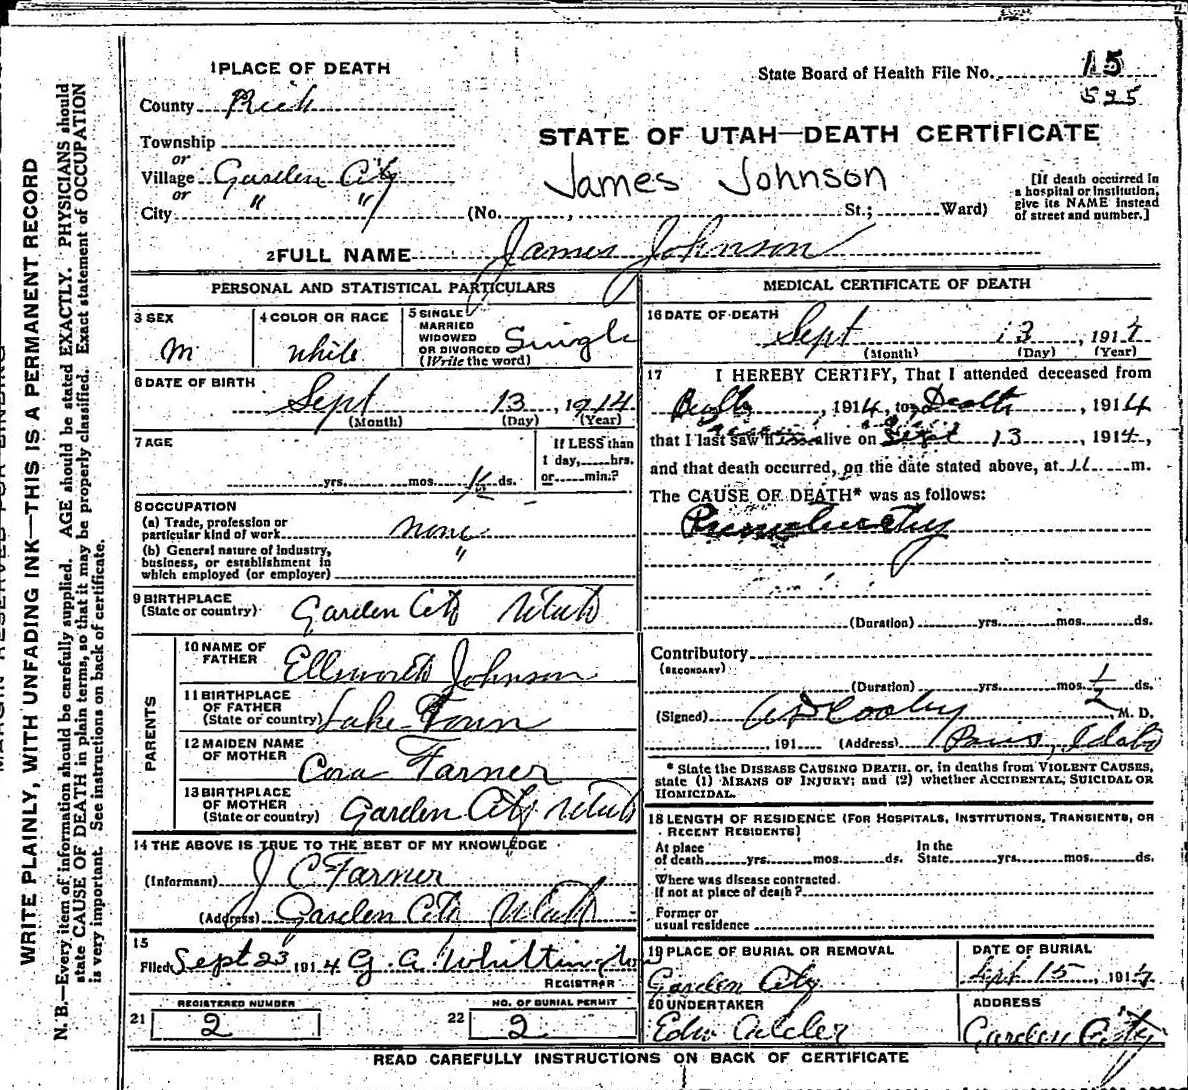 State Board of Health File No. 15
525
1 PLACE OF DEATH
County Rich
Township
or
Village Garden City
or
City " "
STATE OF UTAH—DEATH CERTIFICATE
James Johnson
(No. , St.; Ward)
[If death occurred in
a hospital or institution,
give its NAME instead
of street and number.]
2 FULL NAME James Johnson
PERSONAL AND STATISTICAL PARTICULARS
3 SEX
m
4 COLOR OR RACE
White
5 SINGLE
MARRIED
WIDOWED
OR DIVORCED
(Write the word)
Single
6 DATE OF BIRTH
Sept 13, 1914
(Month) (Day) (Year)
7 AGE
yrs. mos. ds.
If LESS than
1 day, hrs.
or min.?
8 OCCUPATION
(a) Trade, profession or
particular kind of work none
(b) General nature of industry,
business, or establishment in
which employed (or employer) "
9 BIRTHPLACE
(State or country) Garden City Utah
PARENTS
10 NAME OF
FATHER
Ellsworth Johnson
11 BIRTHPLACE
OF FATHER
(State or country) Lake Town
12 MAIDEN NAME
OF MOTHER
Cora Farner
13 BIRTHPLACE
OF MOTHER
(State or country) Garden City Utah
14 THE ABOVE IS TRUE TO THE BEST OF MY KNOWLEDGE
(Informant) J C Farner
(Address) Garden City Utah
15
Filed Sept 23 1914 G. A. Whittington
REGISTRAR
REGISTERED NUMBER
21 2
NO. OF BURIAL PERMIT
22 2
MEDICAL CERTIFICATE OF DEATH
16 DATE OF DEATH
Sept 13, 1914
(Month) (Day) (Year)
17 I HEREBY CERTIFY, That I attended deceased from
Birth, 1914, to Death, 1914
that I last saw him alive on Sept 13, 1914,
and that death occurred, on the date stated above, at 11 m.
The CAUSE OF DEATH* was as follows:
Prematurity
(Duration) yrs. mos. ds.
Contributory
(SECONDARY)
(Duration) yrs. mos. 1/2 ds.
(Signed) Cooley, M. D.
, 191 (Address) Paris, Idaho
* State the DISEASE CAUSING DEATH, or, in deaths from VIOLENT CAUSES,
state (1) MEANS OF INJURY; and (2) whether ACCIDENTAL, SUICIDAL OR
HOMICIDAL.
18 LENGTH OF RESIDENCE (FOR HOSPITALS, INSTITUTIONS, TRANSIENTS, OR
RECENT RESIDENTS)
At place
of death yrs. mos. ds.
In the
State yrs. mos. ds.
Where was disease contracted.
If not at place of death?
Former or
usual residence
19 PLACE OF BURIAL OR REMOVAL
Garden City
DATE OF BURIAL
Sept 15, 1914
20 UNDERTAKER
Edw
ADDRESS
Garden City
READ CAREFULLY INSTRUCTIONS ON BACK OF CERTIFICATE
WRITE PLAINLY, WITH UNFADING INK—THIS IS A PERMANENT RECORD
N. B.—Every item of information should be carefully supplied. AGE should be stated EXACTLY. PHYSICIANS should
state CAUSE OF DEATH in plain terms, so that it may be properly classified. Exact statement of OCCUPATION
is very important. See instructions on back of certificate.